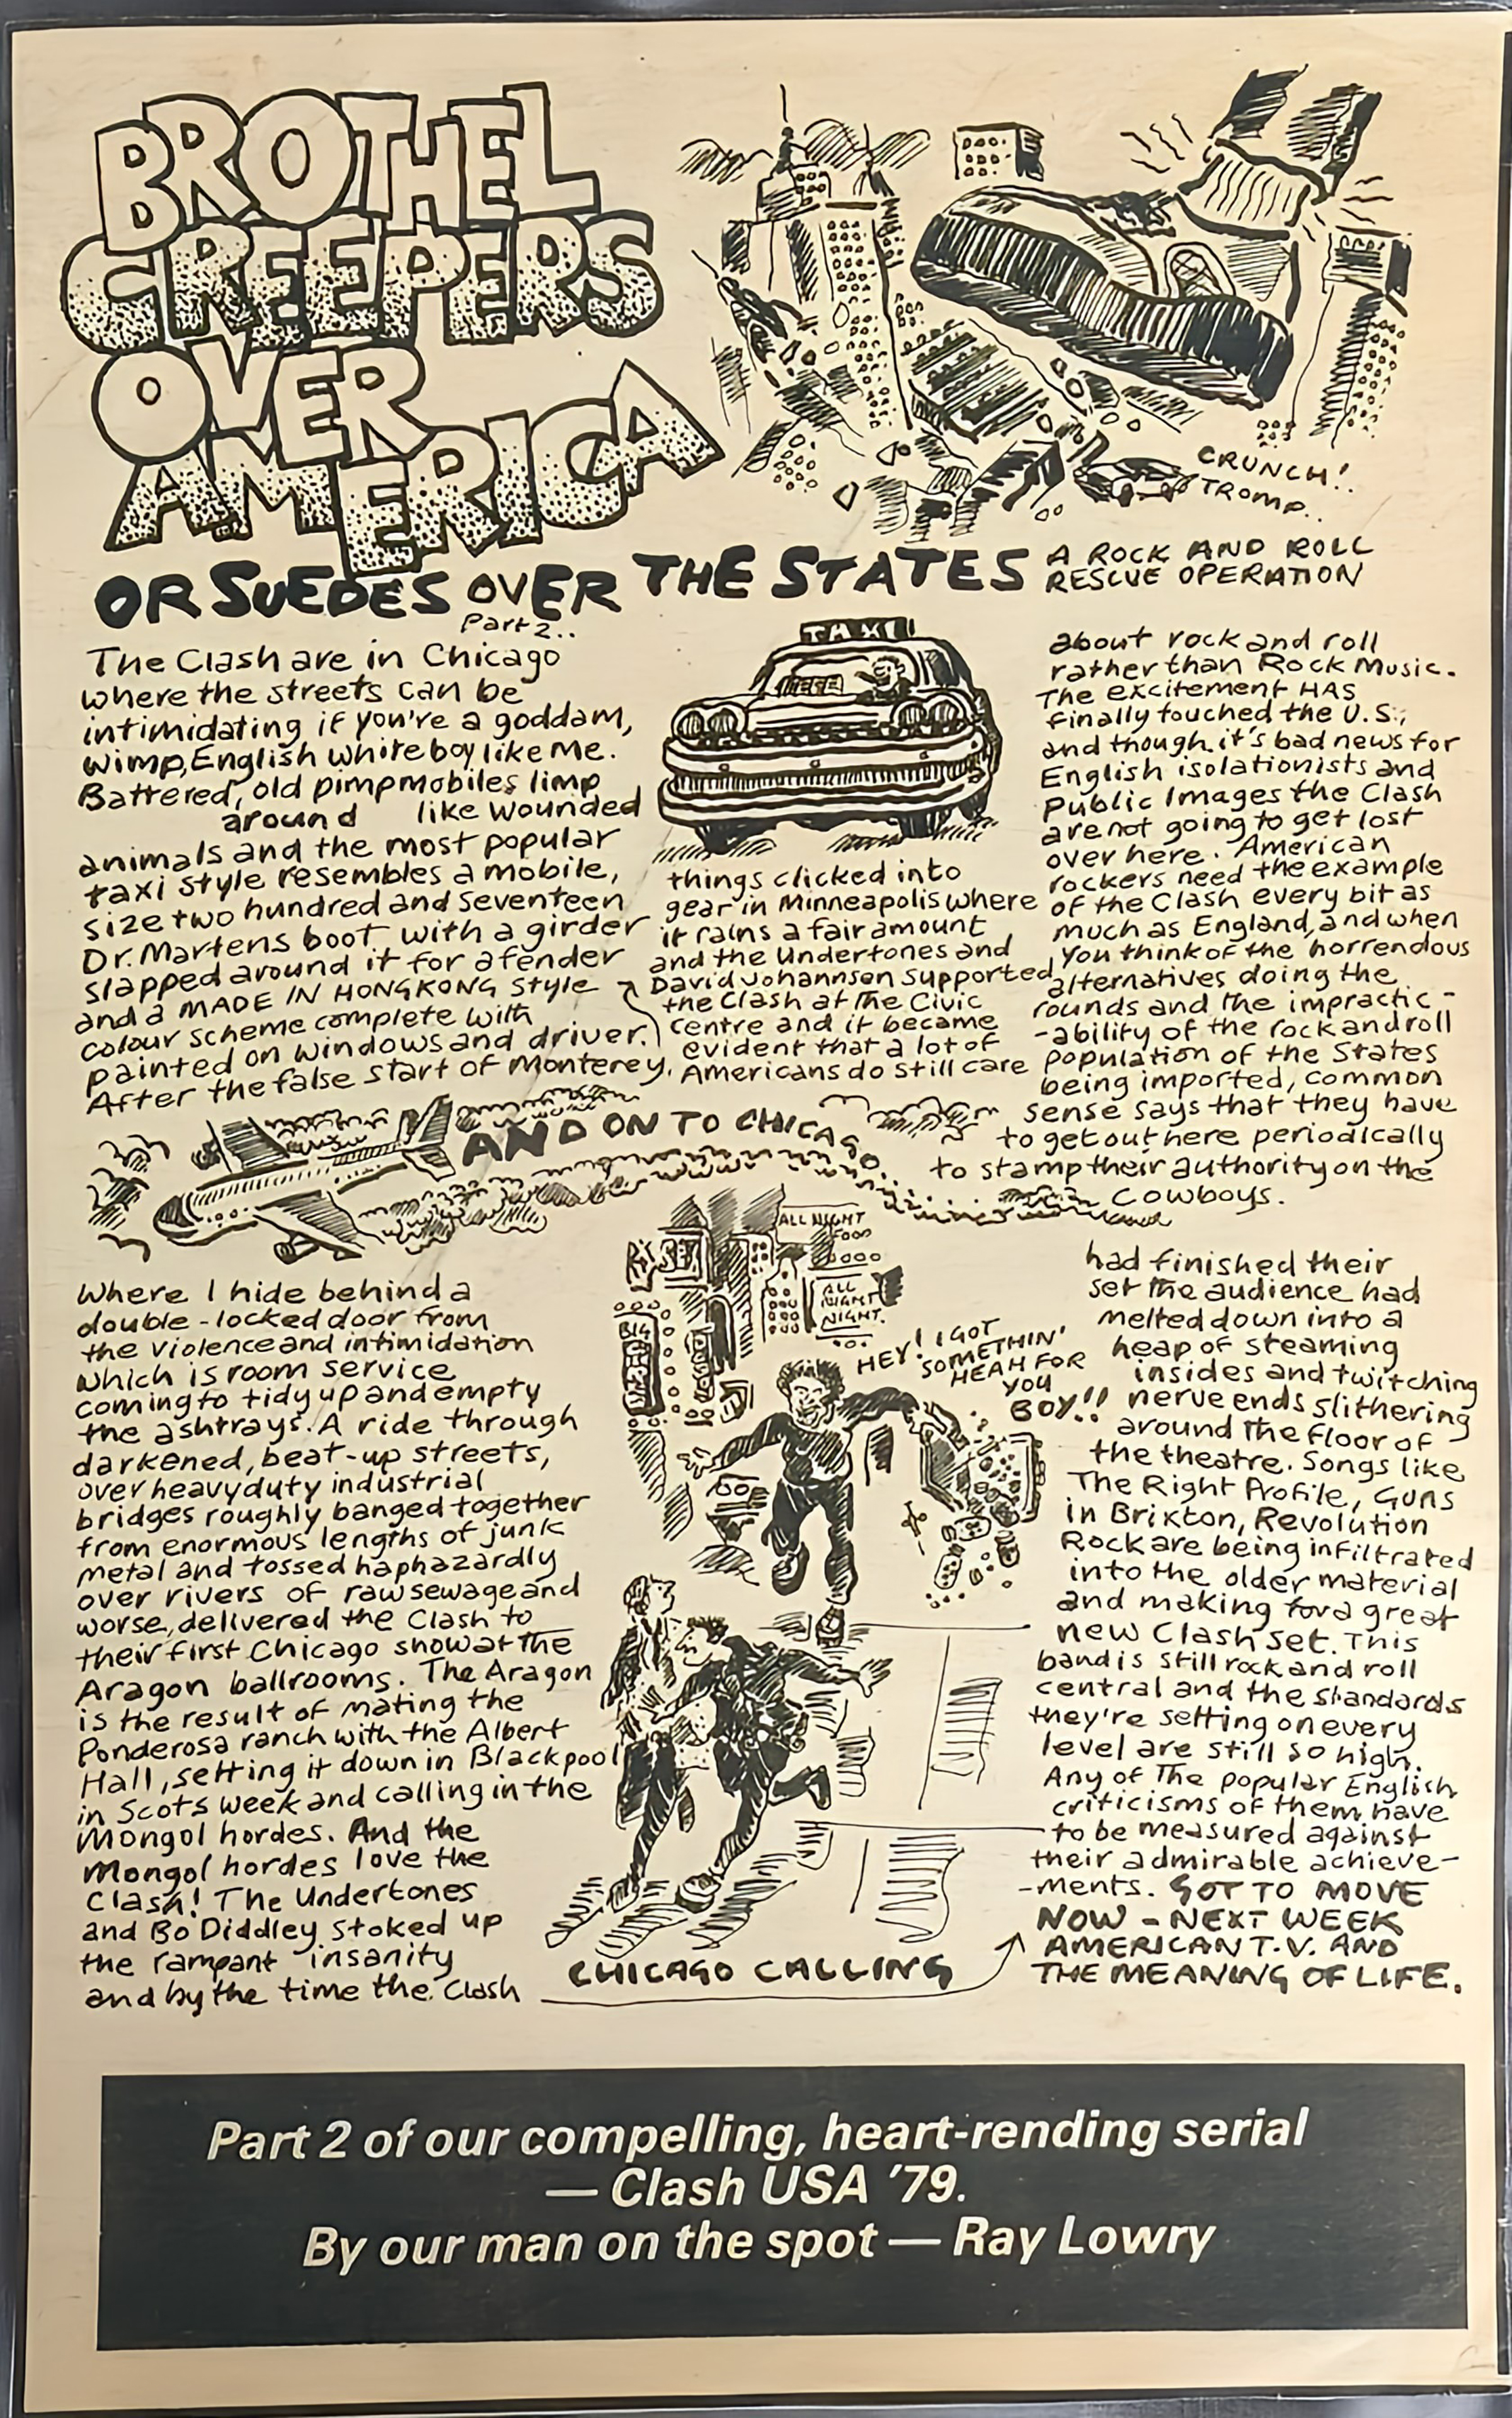 BROTHEL
CREEPERS
OVER
AMERICA
CRUNCH!
TROMP..
OR SUEDES OVER THE STATES
A ROCK AND ROLL
RESCUE OPERATION
Part 2..
The Clash are in Chicago
where the streets can be
intimidating if you're a goddam,
wimp, English white boy like me.
Battered, old pimpmobiles limp
around like wounded
animals and the most popular
taxi style resembles a mobile,
size two hundred and seventeen
Dr. Martens boot with a girder
slapped around it for a fender
and a MADE IN HONG KONG style
colour scheme complete with
painted on windows and driver.
After the false start of Monterey,
TAXI
things clicked into
gear in Minneapolis where
it rains a fair amount
and the Undertones and
David Johannsen supported
the Clash at the Civic
centre and it became
evident that a lot of
Americans do still care
about rock and roll
rather than Rock Music.
The excitement HAS
finally touched the U.S.,
and though it's bad news for
English isolationists and
Public Images the Clash
are not going to get lost
over here. American
rockers need the example
of the Clash every bit as
much as England, and when
you think of the horrendous
alternatives doing the
rounds and the impractic-
-ability of the rock and roll
population of the States
being imported, common
sense says that they have
to get out here periodically
to stamp their authority on the
cowboys.
AND ON TO CHICAGO.
Where I hide behind a
double-locked door from
the violence and intimidation
which is room service
coming to tidy up and empty
the ashtrays. A ride through
darkened, beat-up streets,
over heavy duty industrial
bridges roughly banged together
from enormous lengths of junk
metal and tossed haphazardly
over rivers of raw sewage and
worse, delivered the Clash to
their first Chicago show at the
Aragon ballrooms. The Aragon
is the result of mating the
Ponderosa ranch with the Albert
Hall, setting it down in Blackpool
in Scots week and calling in the
Mongol hordes. And the
Mongol hordes love the
Clash! The Undertones
and Bo Diddley stoked up
the rampant insanity
and by the time the Clash
ALL NIGHT
FOOD
ALL
NIGHT
NIGHT.
HEY! I GOT
SOMETHIN'
HEAH FOR
YOU
BOY!!
CHICAGO CALLING
had finished their
set the audience had
melted down into a
heap of steaming
insides and twitching
nerve ends slithering
around the floor of
the theatre. Songs like
The Right Profile, Guns
in Brixton, Revolution
Rock are being infiltrated
into the older material
and making for a great
new Clash set. This
band is still rock and roll
central and the standards
they're setting on every
level are still so high.
Any of the popular English
criticisms of them have
to be measured against
their admirable achieve-
-ments. GOT TO MOVE
NOW - NEXT WEEK
AMERICAN T.V. AND
THE MEANING OF LIFE.
Part 2 of our compelling, heart-rending serial
— Clash USA '79.
By our man on the spot — Ray Lowry